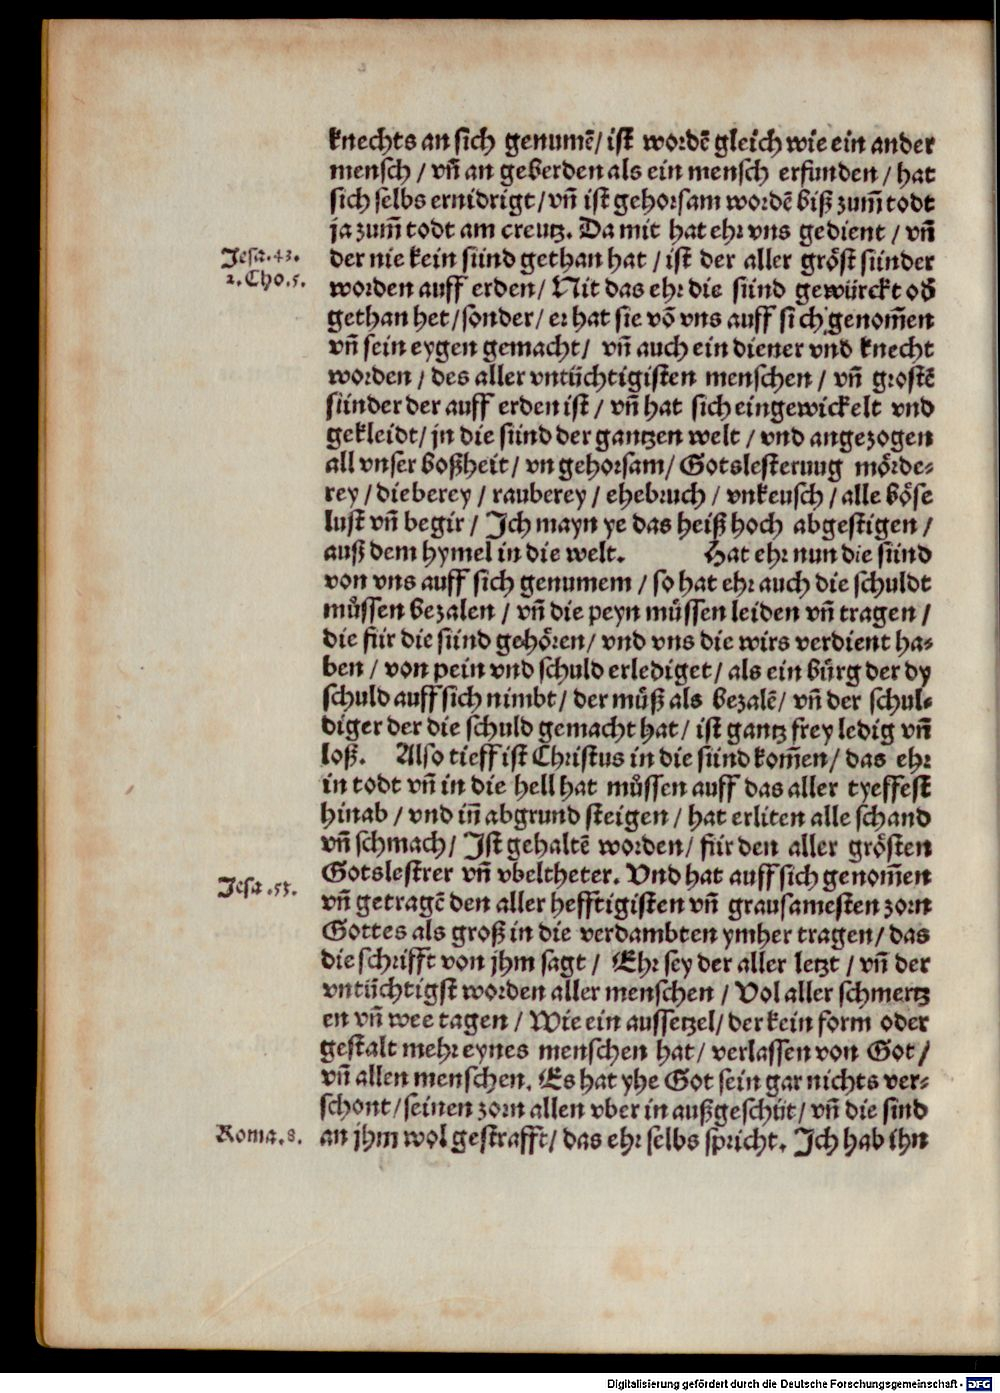 knechts an sich genumē/ ist wordē gleich wie ein ander
mensch / vn̄ an geberden als ein mensch erfunden / hat
sich selbs ernidrigt / vn̄ ist gehorsam wordē biß zum̄ todt
ja zum̄ todt am creutz. Da mit hat ehr vns gedient / vn̄
Jesa. 43.
der nie kein sünd gethan hat / ist der aller gröst sünder
2. Cho. 5.
worden auff erden / Nit das ehr die sünd gewürckt oď
gethan het / sonder / er hat sie vō vns auff sich genom̄en
vn̄ sein eygen gemacht / vn̄ auch ein diener vnd knecht
worden / des aller vntüchtigisten menschen / vn̄ grostē
sünder der auff erden ist / vn̄ hat sich eingewickelt vnd
gekleidt / jn die sünd der gantzen welt / vnd angezogen
all vnser boßheit / vn gehorsam / Gotslesteruug mörde-
rey / dieberey / rauberey / ehebruch / vnkeusch / alle böse
lust vn̄ begir / Jch mayn ye das heiß hoch abgestigen /
auß dem hymel in die welt. Hat ehr nun die sünd
von vns auff sich genumem / so hat ehr auch die schuldt
müssen bezalen / vn̄ die peyn müssen leiden vn̄ tragen /
die für die sünd gehören / vnd vns die wirs verdient ha-
ben / von pein vnd schuld erlediget / als ein bürg der dy
schuld auff sich nimbt / der müß als bezalē / vn̄ der schul-
diger der die schuld gemacht hat / ist gantz frey ledig vn̄
loß. Also tieff ist Christus in die sünd kom̄en / das ehr
in todt vn̄ in die hell hat müssen auff das aller tyeffest
hinab / vnd in̄ abgrund steigen / hat erliten alle schand
vn̄ schmach / Jst gehaltē worden / für den aller grösten
Gotslestrer vn̄ vbeltheter. Vnd hat auff sich genom̄en
Jesa. 53.
vn̄ getragē den aller hefftigisten vn̄ grausamesten zorn
Gottes als groß in die verdambten ymher tragen / das
die schrifft von jhm sagt / Ehr sey der aller letzt / vn̄ der
vntüchtigst worden aller menschen / Vol aller schmertz
en vn̄ wee tagen / Wie ein aussetzel / der kein form oder
gestalt mehr eynes menschen hat / verlassen von Got /
vn̄ allen menschen. Es hat yhe Got sein gar nichts ver-
schont / seinen zorn allen vber in außgeschüt / vn̄ die sünd
Roma. 8.
an jhm wol gestrafft / das ehr selbs spricht. Jch hab ihn
Digitalisierung gefördert durch die Deutsche Forschungsgemeinschaft - DFG